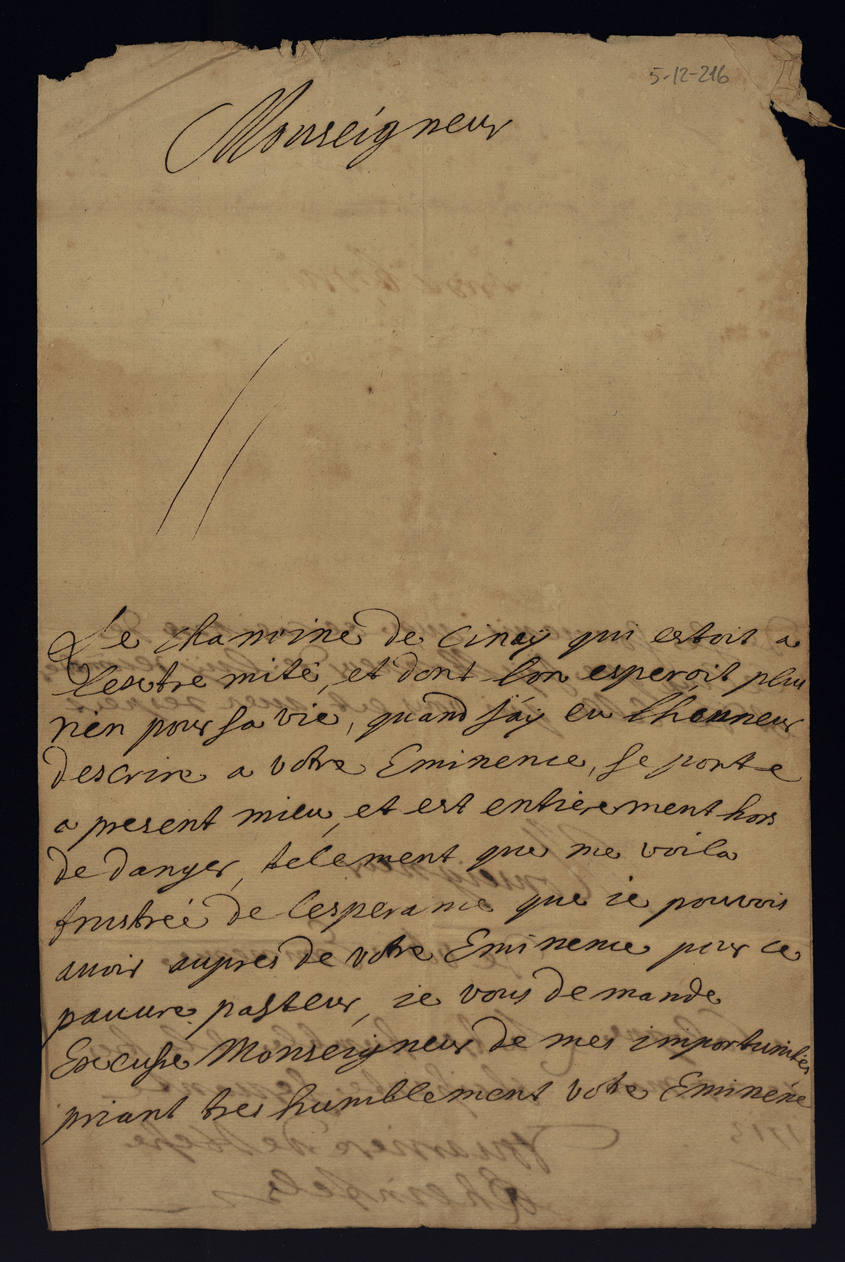 5-12-216
Monseigneur
Le chanoine de Cinay qui estoit a
lextremité, et dont lon esperoit plus
rien pour sa vie, quand j'ay eu lhonneur
descrire a votre Eminence, se porte
a present mieu, et est entierement hors
de danger, telement que me voila
frustrée de lesperance que ie pouvois
avoir aupres de votre Eminence pour ce
pauvre pasteur, ie vous demande
Excuse Monseigneur de mes importunites
priant tres humblement votre Eminence